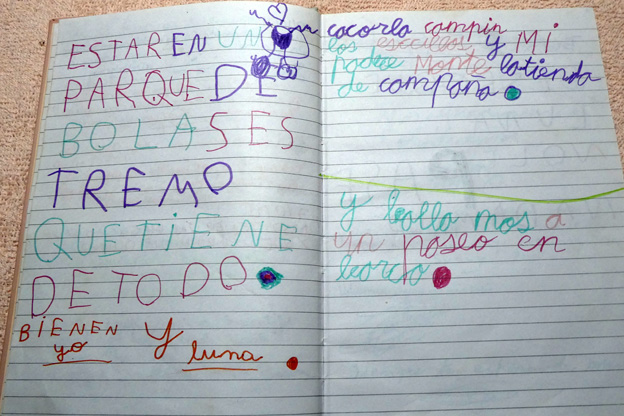 ESTAR EN UN
PARQUE DE
BOLAS ES
TREMO
QUE TIENE
DE TODO
BIENEN Y
yo luna
los y MI
padre Monte la tienda
de compana
y bolla mos a
un poseo en
borco